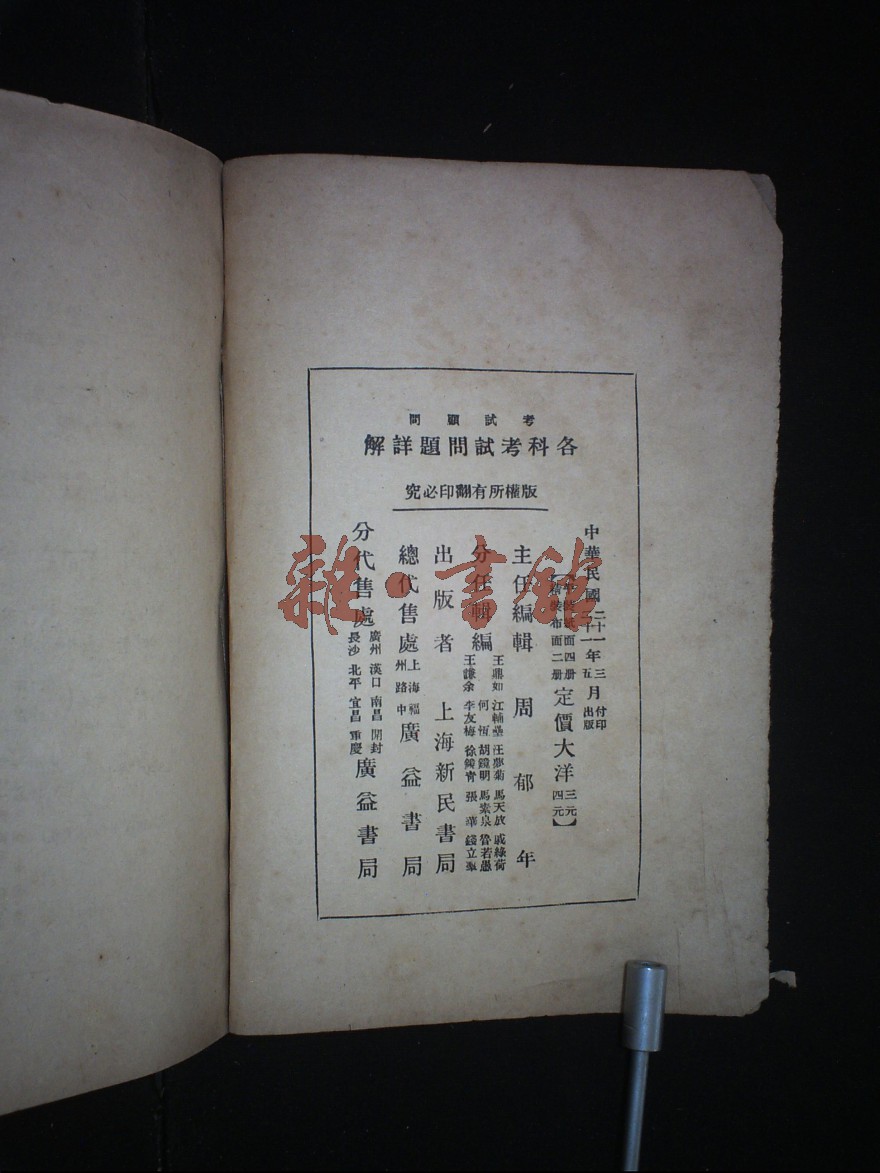 考試顧問
各科考試問題詳解
版權所有翻印必究
中華民國二十一年三月付印
二十一年五月出版
平裝紙面四册 定價大洋三元
精裝布面二册 定價大洋四元
主任編輯 周郁年
分任輯編 王鼎如 江輔壘 汪夢菊 馬天放 戚綠荷
何恆 胡鏡明 馬素泉 魯若愚
王謙余 李友梅 徐鶴青 張華 錢立
出版者 上海新民書局
總代售處 上海福州路中 廣益書局
分代售處 廣州 漢口 南昌 開封
長沙 北平 宜昌 重慶 廣益書局
雜·書館